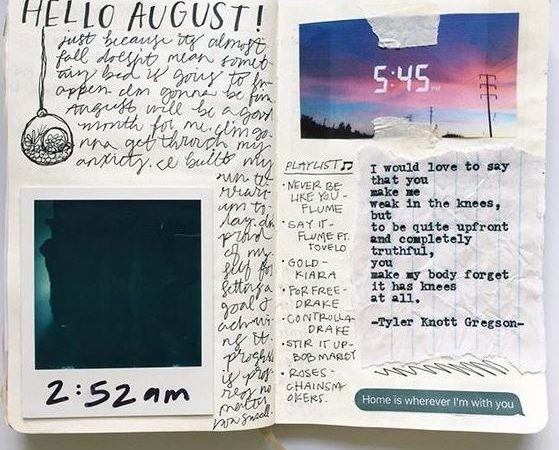 HELLO AUGUST!
just because its almost
fall doesn't mean somet-
ing bad is going to ha-
appen. im gonna be fine
August will be a good
month for me. im go-
nna get through my
anxiety. ive built my
run
um to-
day. im
proud
of my-
self for
setting a
goal &
achievi-
ng it.
progress
is prog-
ress no
matter
how small.
2:52am
5:45 PM
PLAYLIST♫
·NEVER BE
LIKE YOU-
FLUME
·SAY IT-
FLUME FT.
TOVELO
·GOLD-
KIARA
·FOR FREE-
DRAKE
·CONTROLLA-
DRAKE
·STIR IT UP-
BOB MARLEY
·ROSES-
CHAINSM
OKERS.
I would love to say
that you
make me
weak in the knees,
but
to be quite upfront
and completely
truthful,
you
make my body forget
it has knees
at all.
-Tyler Knott Gregson-
Home is wherever I'm with you